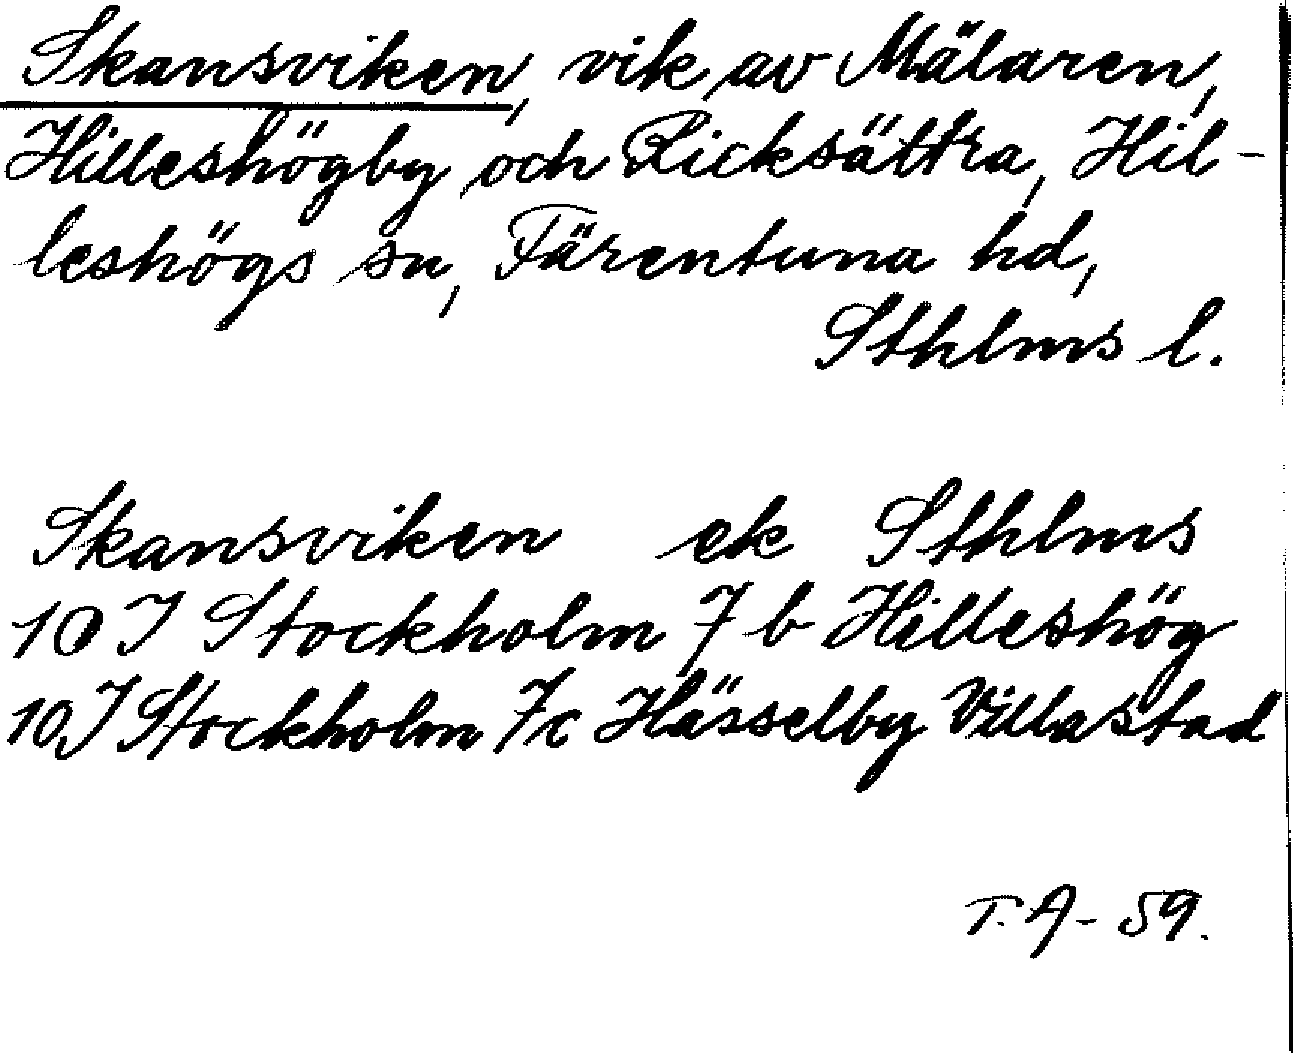 Skansviken, vik av Mälaren,
Hilleshögby och Ricksättra, Hil-
leshögs sn, Färentuna hd,
Sthlms l.
Skansviken ek Sthlms
10 I Stockholm 7 b Hilleshög
10 I Stockholm 7c Hässelby Villastad
T. A- 59.